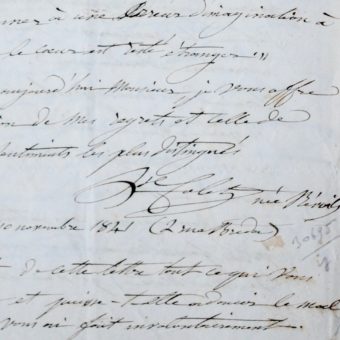 à une erreur d'imagination à
le cœur est resté étranger.
aujourd'hui Monsieur je vous offre
de mes regrets et celle de
sentiments les plus distingués
Colet née Révoil
10 novembre 184 (2 rue Breda)
30695
de cette lettre tout ce que vous
et puisse-t-elle adoucir le mal
vous ai fait involontairement.